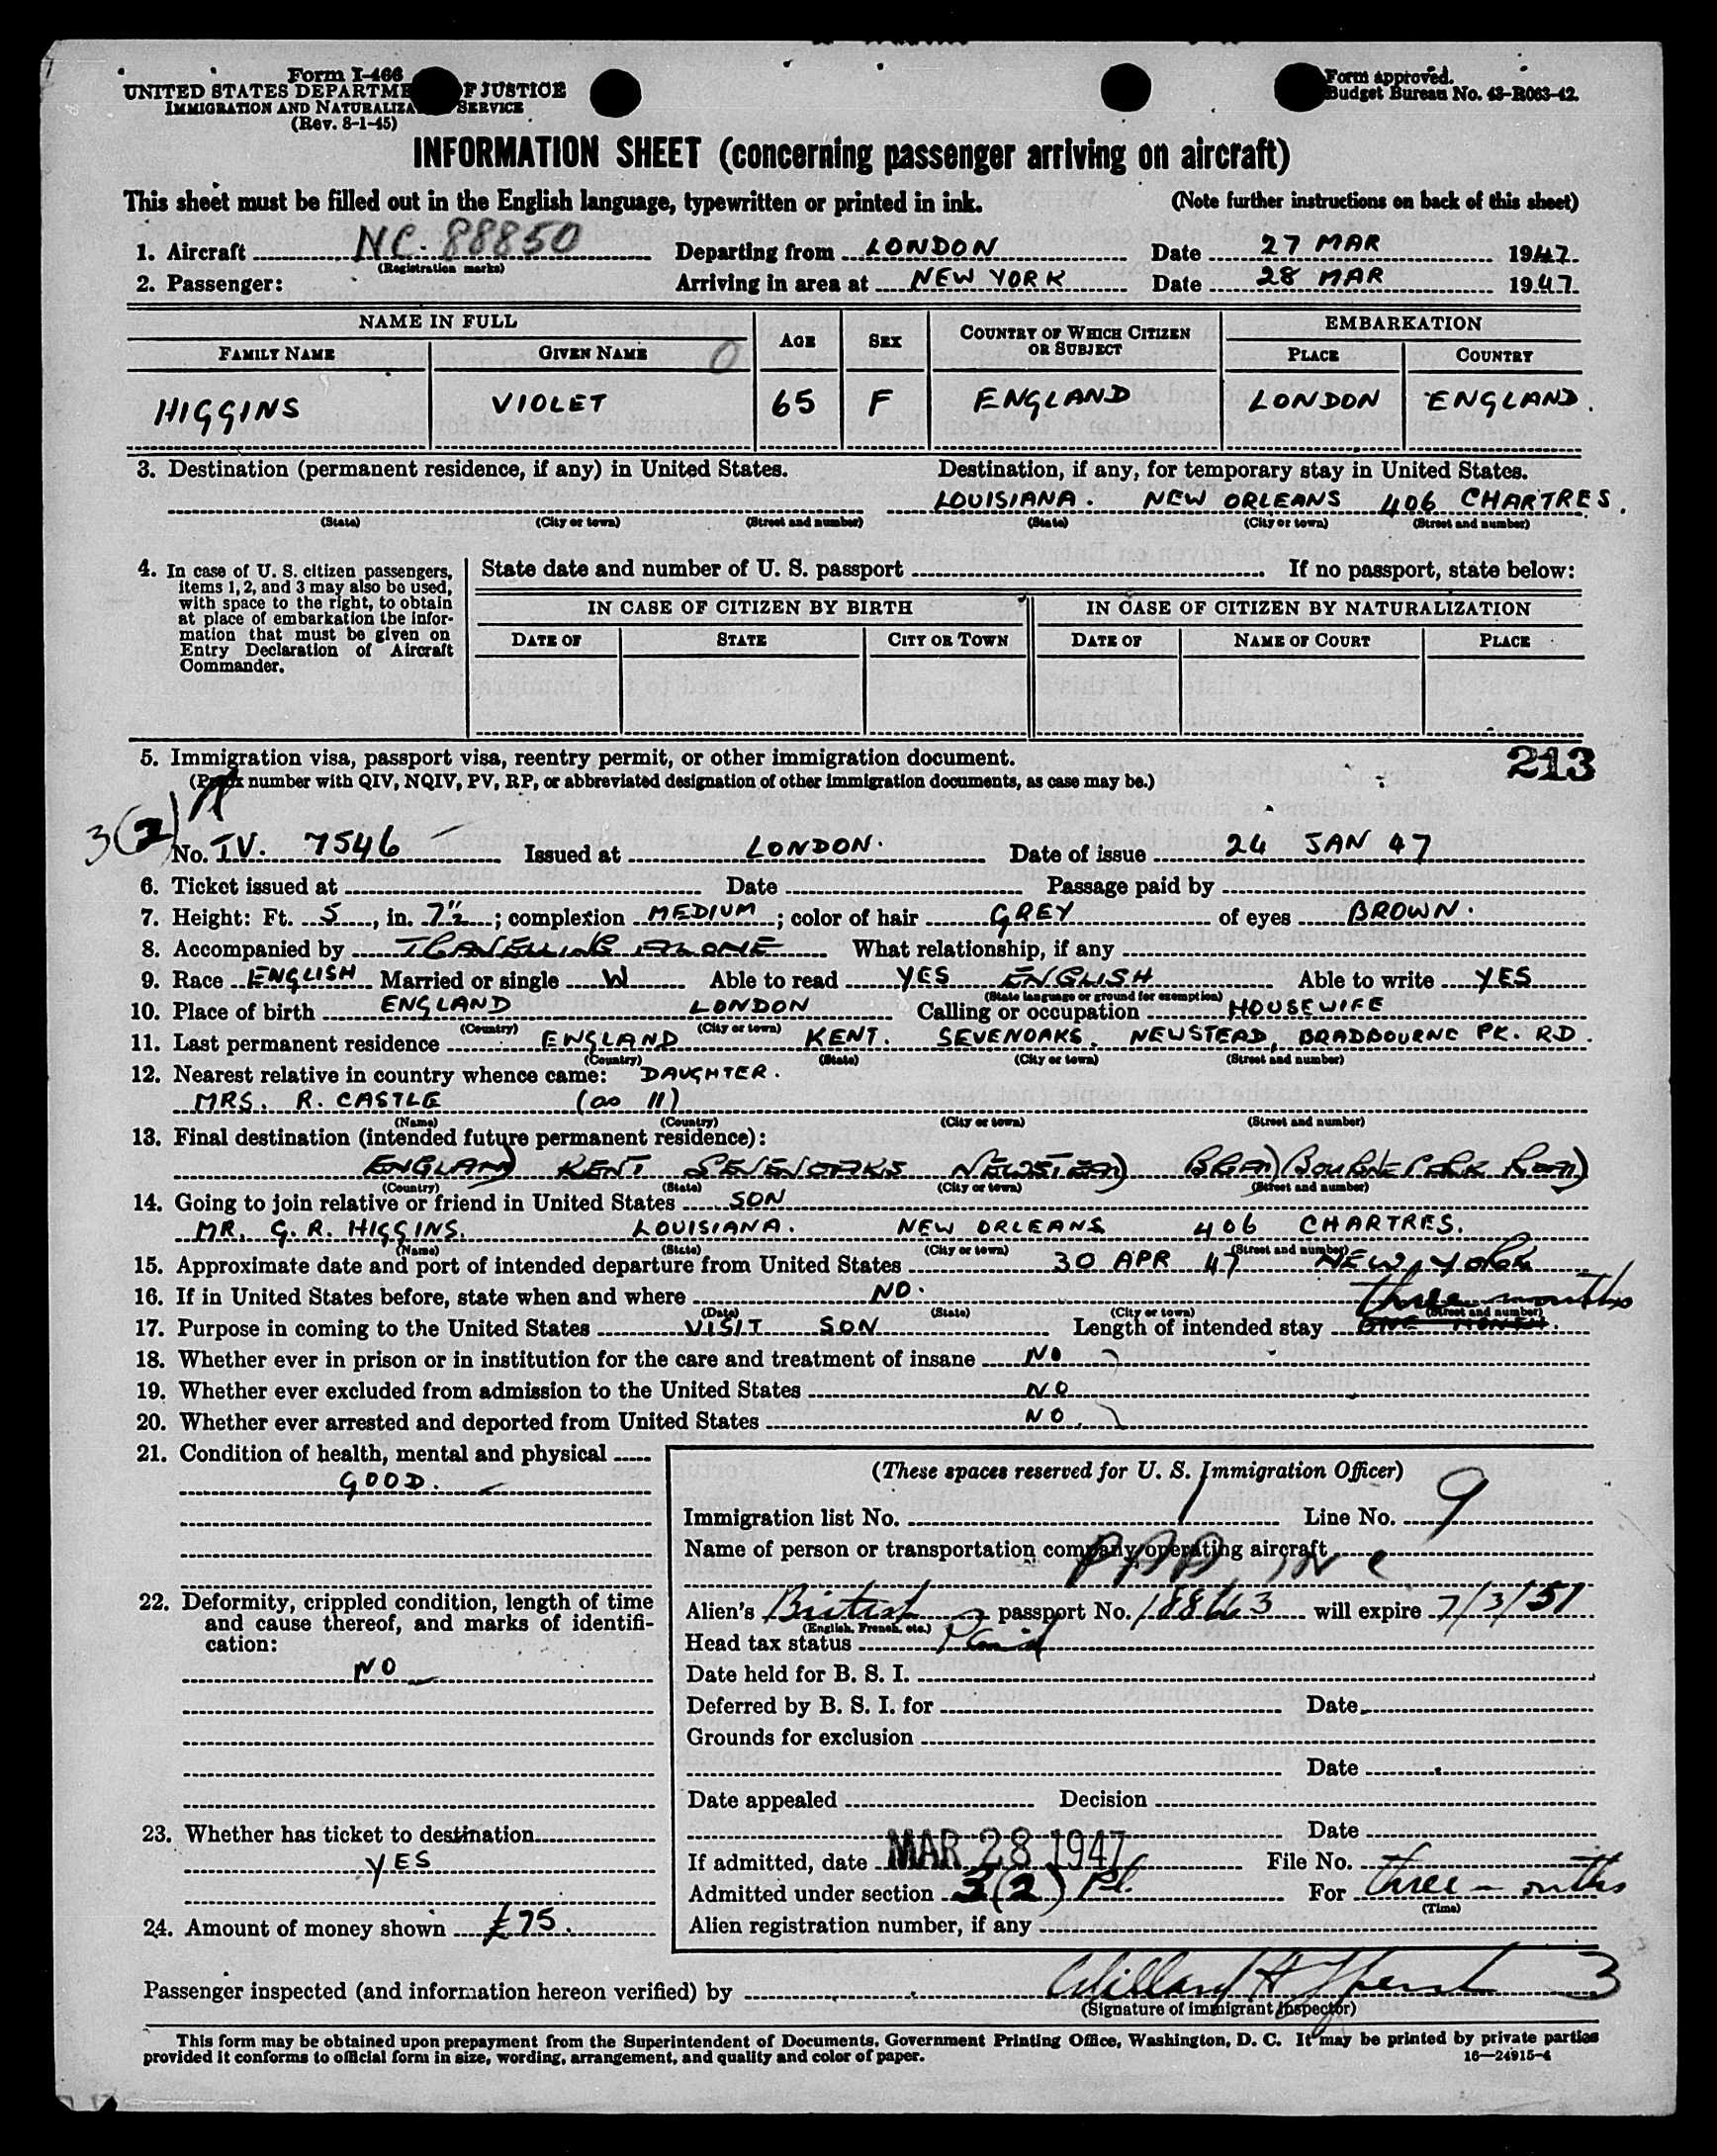 Form I-466
UNITED STATES DEPARTME F JUSTICE
IMMIGRATION AND NATURALIZA SERVICE
(Rev. 8-1-45)
Form approved.
Budget Bureau No. 43-R063-42.
INFORMATION SHEET (concerning passenger arriving on aircraft)
This sheet must be filled out in the English language, typewritten or printed in ink. (Note further instructions on back of this sheet)
1. Aircraft NC. 88850 Departing from LONDON Date 27 MAR 1947
(Registration marks)
2. Passenger: Arriving in area at NEW YORK Date 28 MAR 1947
NAME IN FULL AGE SEX COUNTRY OF WHICH CITIZEN OR SUBJECT EMBARKATION
FAMILY NAME GIVEN NAME 0 PLACE COUNTRY
HIGGINS VIOLET 65 F ENGLAND LONDON ENGLAND.
3. Destination (permanent residence, if any) in United States. Destination, if any, for temporary stay in United States.
LOUISIANA. NEW ORLEANS 406 CHARTRES.
(State) (City or town) (Street and number) (State) (City or town) (Street and number)
4. In case of U. S. citizen passengers,
items 1, 2, and 3 may also be used,
with space to the right, to obtain
at place of embarkation the infor-
mation that must be given on
Entry Declaration of Aircraft
Commander.
State date and number of U. S. passport If no passport, state below:
IN CASE OF CITIZEN BY BIRTH IN CASE OF CITIZEN BY NATURALIZATION
DATE OF STATE CITY OR TOWN DATE OF NAME OF COURT PLACE
5. Immigration visa, passport visa, reentry permit, or other immigration document. 213
(Prefix number with QIV, NQIV, PV, RP, or abbreviated designation of other immigration documents, as case may be.)
3(2)
No. IV. 7546 Issued at LONDON. Date of issue 24 JAN 47
6. Ticket issued at Date Passage paid by
7. Height: Ft. 5, in. 7½"; complexion MEDIUM; color of hair GREY of eyes BROWN.
8. Accompanied by TRAVELLING ALONE What relationship, if any
9. Race ENGLISH Married or single W Able to read YES ENGLISH Able to write YES
(State language or ground for exemption)
10. Place of birth ENGLAND LONDON Calling or occupation HOUSEWIFE
(Country) (City or town)
11. Last permanent residence ENGLAND KENT. SEVENOAKS. NEWSTEAD, BRADBOURNE PK. RD.
(Country) (State) (City or town) (Street and number)
12. Nearest relative in country whence came: DAUGHTER.
MRS. R. CASTLE (as 11)
(Name) (Country) (City or town) (Street and number)
13. Final destination (intended future permanent residence):
ENGLAND KENT SEVENOAKS NEWSTEAD BRADBOURNE PARK ROAD
(Country) (State) (City or town) (Street and number)
14. Going to join relative or friend in United States SON
MR. G. R. HIGGINS. LOUISIANA. NEW ORLEANS 406 CHARTRES.
(Name) (State) (City or town) (Street and number)
15. Approximate date and port of intended departure from United States 30 APR 47 NEW YORK
16. If in United States before, state when and where NO.
(Date) (State) (City or town) (Street and number)
three months
17. Purpose in coming to the United States VISIT SON Length of intended stay ONE MONTH.
18. Whether ever in prison or in institution for the care and treatment of insane NO
19. Whether ever excluded from admission to the United States NO
20. Whether ever arrested and deported from United States NO.
21. Condition of health, mental and physical
GOOD.
22. Deformity, crippled condition, length of time
and cause thereof, and marks of identifi-
cation:
NO
23. Whether has ticket to destination
YES
24. Amount of money shown £75.
(These spaces reserved for U. S. Immigration Officer)
Immigration list No. 1 Line No. 9
Name of person or transportation company operating aircraft
PAA INC
Alien's British passport No. will expire 7/3/51
(English, French, etc.)
Head tax status Paid
Date held for B. S. I.
Deferred by B. S. I. for Date
Grounds for exclusion
Date
Date appealed Decision
Date
If admitted, date MAR 28 1947 File No.
Admitted under section 3(2) For three months
(Time)
Alien registration number, if any
Passenger inspected (and information hereon verified) by Willard 3
(Signature of immigrant inspector)
This form may be obtained upon prepayment from the Superintendent of Documents, Government Printing Office, Washington, D. C. It may be printed by private parties
provided it conforms to official form in size, wording, arrangement, and quality and color of paper. 16—24915-4